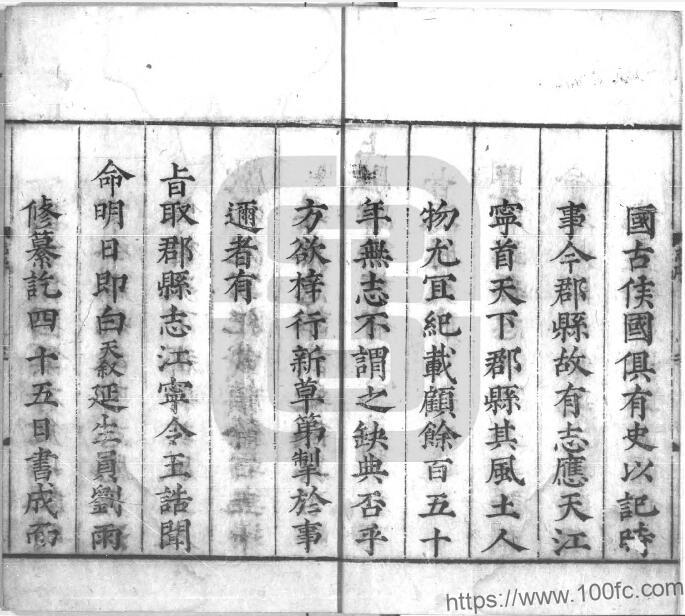 國古侯國俱有史以記時
事今郡縣故有志應天江
寧首天下郡縣其風土人
物尤宜紀載顧餘百五十
年無志不謂之缺典否乎
方欲梓行新草第掣於事
邇者有
旨取郡縣志江寧令王誥聞
命明日即白天敘延生員劉雨
修纂訖四十五日書成而
https://www.100fc.com